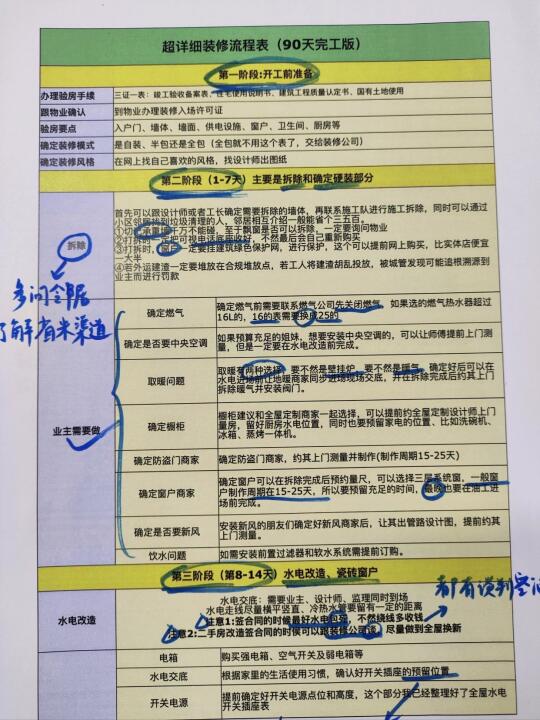 超详细装修流程表（90天完工版）
第一阶段:开工前准备
办理验房手续 三证一表：竣工验收备案表、住宅使用说明书、建筑工程质量认定书、国有土地使用
跟物业确认 到物业办理装修入场许可证
验房要点 入户门、墙体、墙面、供电设施、窗户、卫生间、厨房等
确定装修模式 是自装、半包还是全包（全包就不用这个表了，交给装修公司）
确定装修风格 在网上找自己喜欢的风格，找设计师出图纸
第二阶段（1-7天）主要是拆除和确定硬装部分
拆除
首先可以跟设计师或者工长确定需要拆除的墙体，再联系施工队进行施工拆除，同时可以通过
小区邻居找到垃圾清理的人，邻居相互介绍一般能省个三五百。
①切记承重墙千万不能碰，至于飘窗是否可以拆除，一定要询问物业
②打拆时一定把可视电话底座收好，不然最后会自己重新购买
③打拆时，窗户一定要挂建筑绿色保护网，进行保护，这个可以提前网上购买，比实体店便宜
一大半
④若外运建渣一定要堆放在合规堆放点，若工人将建渣胡乱投放，被城管发现可能追根溯源到
业主而进行罚款
多问邻居
了解省米渠道
业主需要做
确定燃气 确定燃气前需要联系燃气公司先关闭燃气，如果选的燃气热水器超过
16L的，16的表需要换成25的
确定是否要中央空调 如果预算充足的姐妹，想要安装中央空调的，可以让师傅提前上门测
量，但是一定要在水电改造前完成。
取暖问题 取暖有两种选择，要不然是壁挂炉，要不然是暖气，确定好后可以在
水电进场前让地暖商家同步进场现场交底，并在拆除完成后约其上门
拆除暖气并安装阀门。
确定橱柜 橱柜建议和全屋定制商家一起选择，可以提前约全屋定制设计师上门
量房，留好厨房水电位置，同时也要预留家电的位置、比如洗碗机、
冰箱、蒸烤一体机。
确定防盗门商家 确定防盗门商家，约其上门测量并制作(制作周期15-25天)
确定窗户商家 确定窗户可以在拆除完成后预约量尺，可以选择三层系统窗，一般窗
户制作周期在15-25天，所以要预留充足的时间，最晚也要在油工进
场前完成。
确定是否要新风 安装新风的朋友们确定好新风商家后，让其出管路设计图，提前约其
上门测量。
饮水问题 如需安装前置过滤器和软水系统需提前订购。
第三阶段（第8-14天）水电改造、瓷砖窗户
水电改造
水电交底：需要业主、设计师、监理同时到场
水电走线尽量横平竖直、冷热水管要留有一定的距离
注意1:签合同的时候最好水电包强，不然绕线多收钱
注意2:二手房改造签合同的时候可以跟装修公司谈，尽量做到全屋换新
电箱 购买强电箱、空气开关及弱电箱等
水电交底 根据家里的生活使用习惯，确认好开关插座的预留位置
开关电源 提前确定好开关电源点位和高度，这个部分我已经整理好了全屋水电
开关插座表